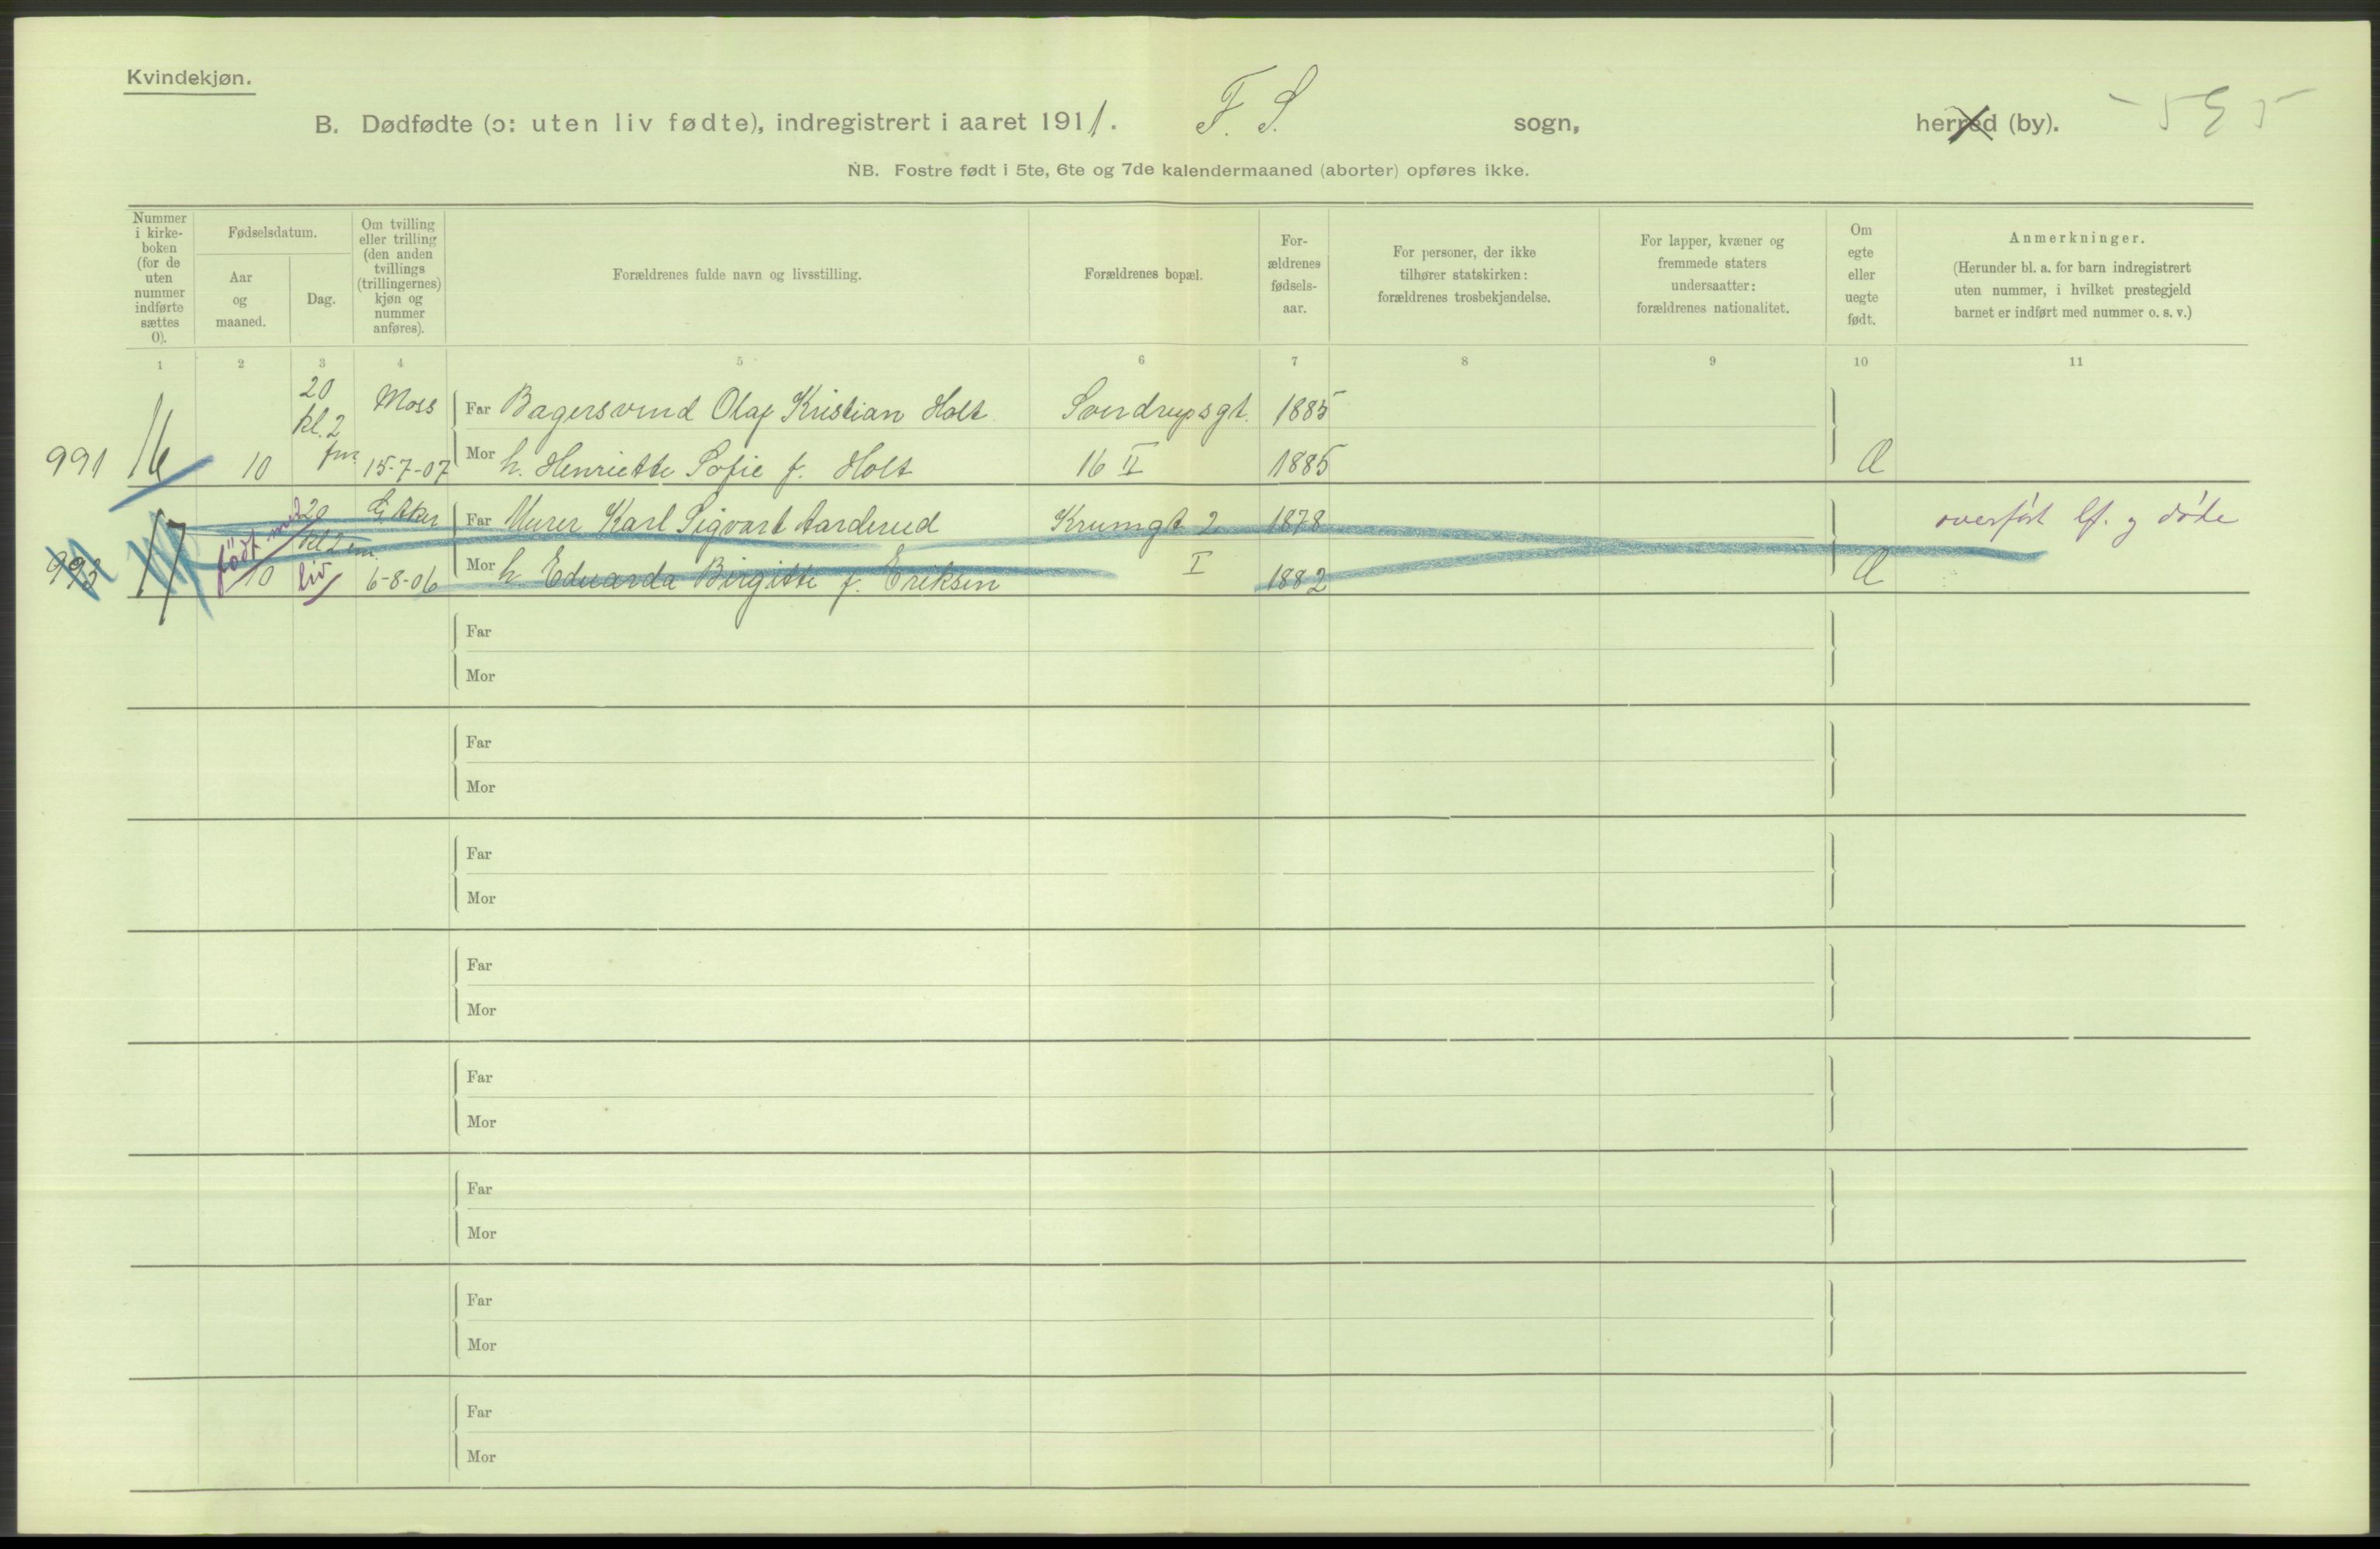 Kvindekjøn.
B. Dødfødte (ɔ: uten liv fødte), indregistrert i aaret 1911. F. S. sogn, herred (by). - 595
NB. Fostre født i 5te, 6te og 7de kalendermaaned (aborter) opføres ikke.
Nummer i kirke-boken (for de uten nummer indførte sættes 0).
Fødselsdatum.
Aar og maaned.
Dag.
Om tvilling eller trilling (den anden tvillings (trillingernes) kjøn og nummer anføres).
Forældrenes fulde navn og livsstilling.
Forældrenes bopæl.
For-ældrenes fødsels-aar.
For personer, der ikke tilhører statskirken: forældrenes trosbekjendelse.
For lapper, kvæner og fremmede staters undersaatter: forældrenes nationalitet.
Om egte eller uegte født.
Anmerkninger.
(Herunder bl. a. for barn indregistrert uten nummer, i hvilket prestegjeld barnet er indført med nummer o. s. v.)
1 2 3 4 5 6 7 8 9 10 11
20 kl. 2 fm. Moss Far Bagersvend Olaf Kristian Holt Sverdrupsgt. 1885
991 16 10 15-7-07 Mor h. Henriette Sofie f. Holt 16 II 1885 Æ
født med liv 20 kl 2 em. G. Aker Far Murer Karl Sigvart Aarderud Krumgt 2 1878 overført lf. g døde
992 17 10 6-8-06 Mor h. Eduarda Birgitte f. Eriksen I 1882 Æ
Far
Mor
Far
Mor
Far
Mor
Far
Mor
Far
Mor
Far
Mor
Far
Mor
Far
Mor